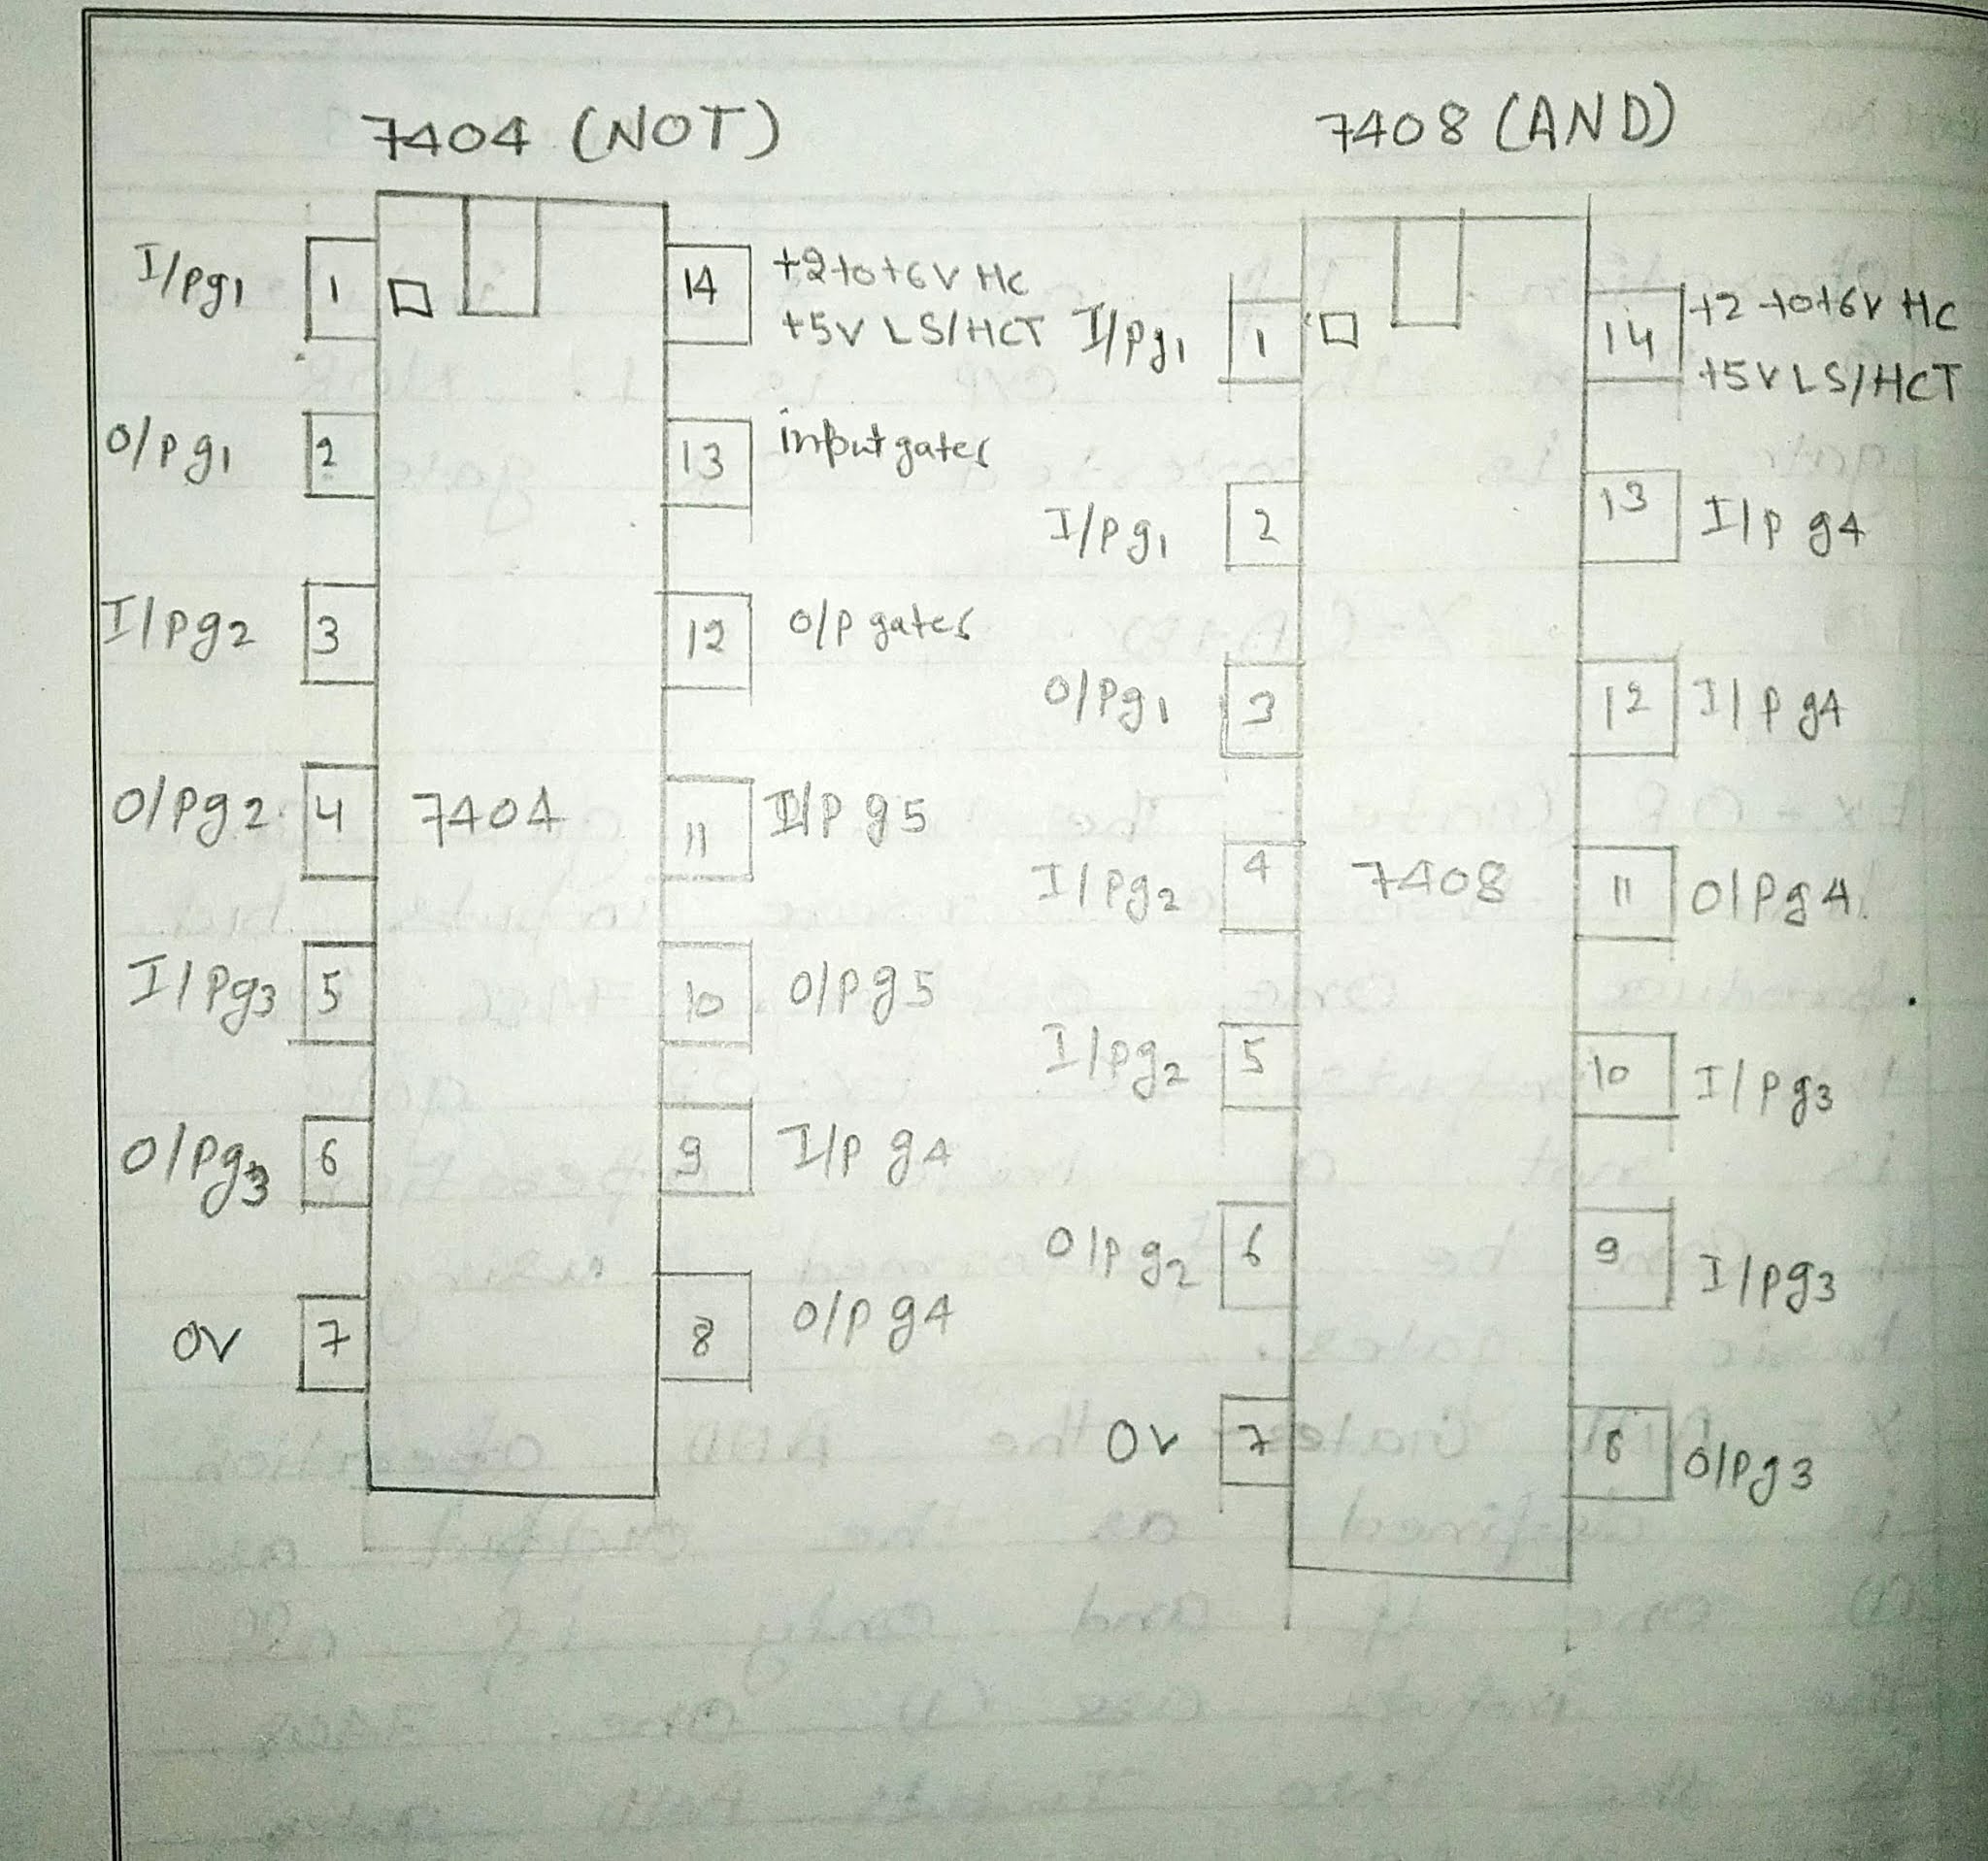 7404 (NOT)
I/pg1 1
14 +2 to +6V HC
+5V LS/HCT
O/pg1 2
13 input gates
I/pg2 3
12 O/p gates
O/pg2 4
7404
11 I/p g5
I/pg3 5
10 O/p g5
O/pg3 6
9 I/p g4
0V 7
8 O/p g4
7408 (AND)
I/pg1 1
14 +2 to +6V HC
+5V LS/HCT
I/pg1 2
13 I/p g4
O/pg1 3
12 I/p g4
I/pg2 4
7408
11 O/p g4
I/pg2 5
10 I/pg3
O/pg2 6
9 I/pg3
0V 7
8 O/pg3